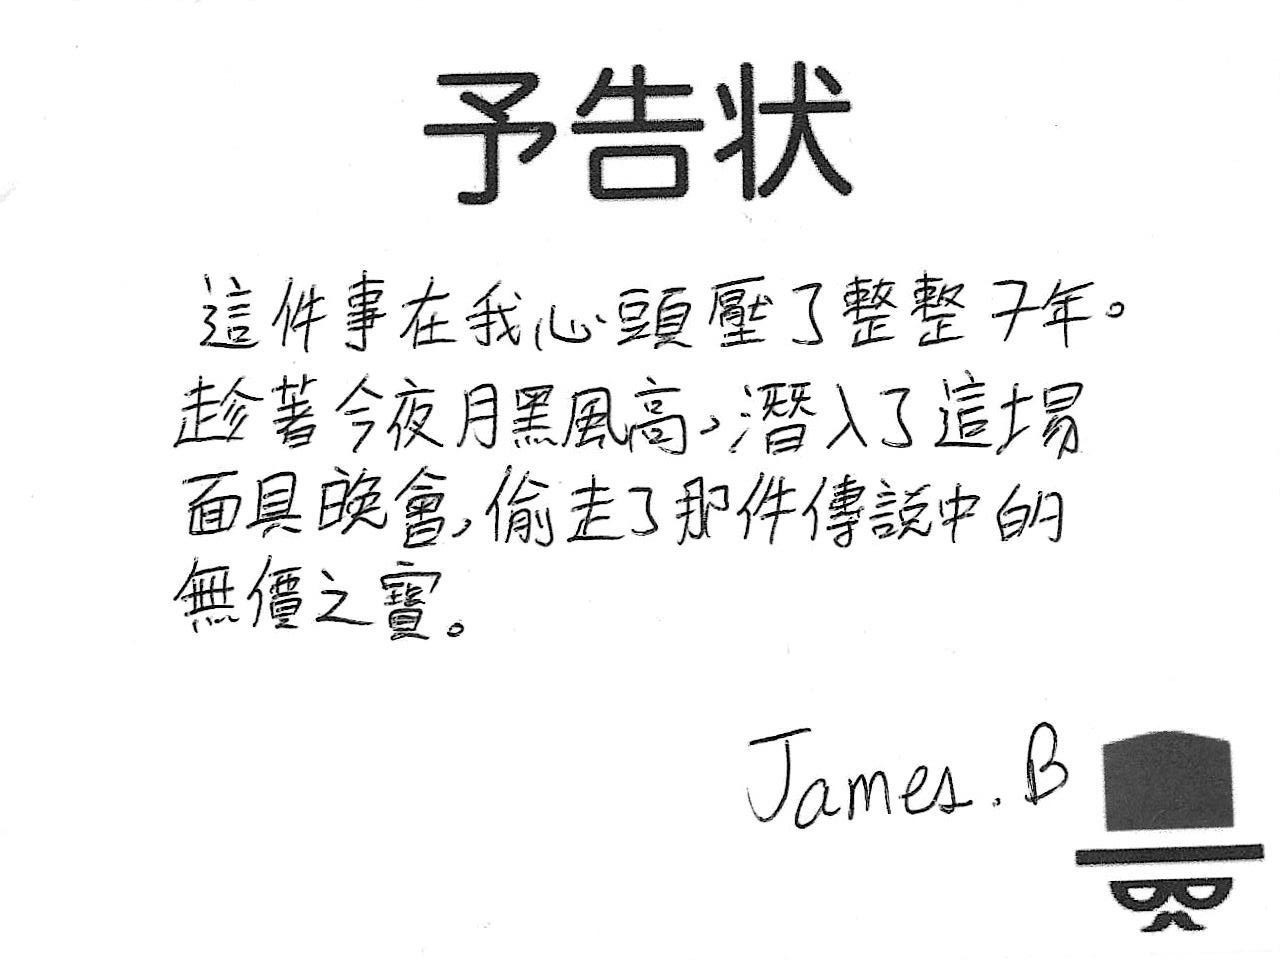 予告状
這件事在我心頭壓了整整7年。
趁著今夜月黑風高,潛入了這場
面具晚會,偷走了那件傳說中的
無價之寶。
James. B